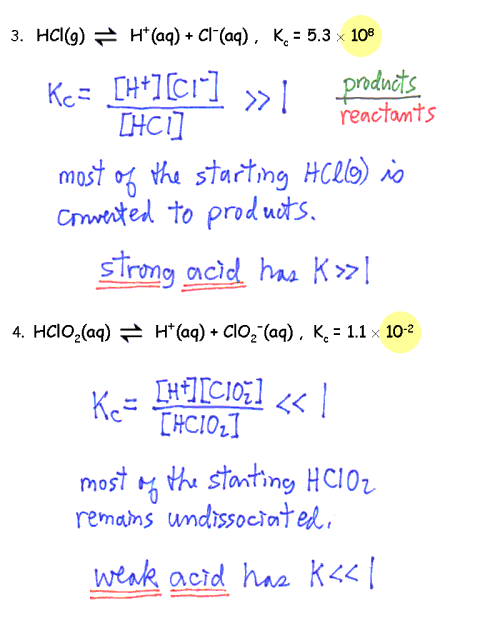 3. HCl(g) ⇌ H⁺(aq) + Cl⁻(aq) , K꜀ = 5.3 × 10⁸
Kc = [H⁺][Cl⁻] / [HCl] >> 1 products / reactants
most of the starting HCl(g) is
converted to products.
strong acid has K >> 1
4. HClO₂(aq) ⇌ H⁺(aq) + ClO₂⁻(aq) , K꜀ = 1.1 × 10⁻²
Kc = [H⁺][ClO₂⁻] / [HClO₂] << 1
most of the starting HClO₂
remains undissociated.
weak acid has K << 1